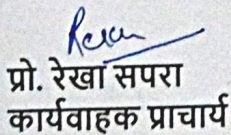 प्रो. रेखा सपरा
कार्यवाहक प्राचार्य